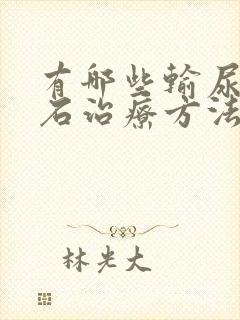 有哪些输尿
石治疗方法
林光大